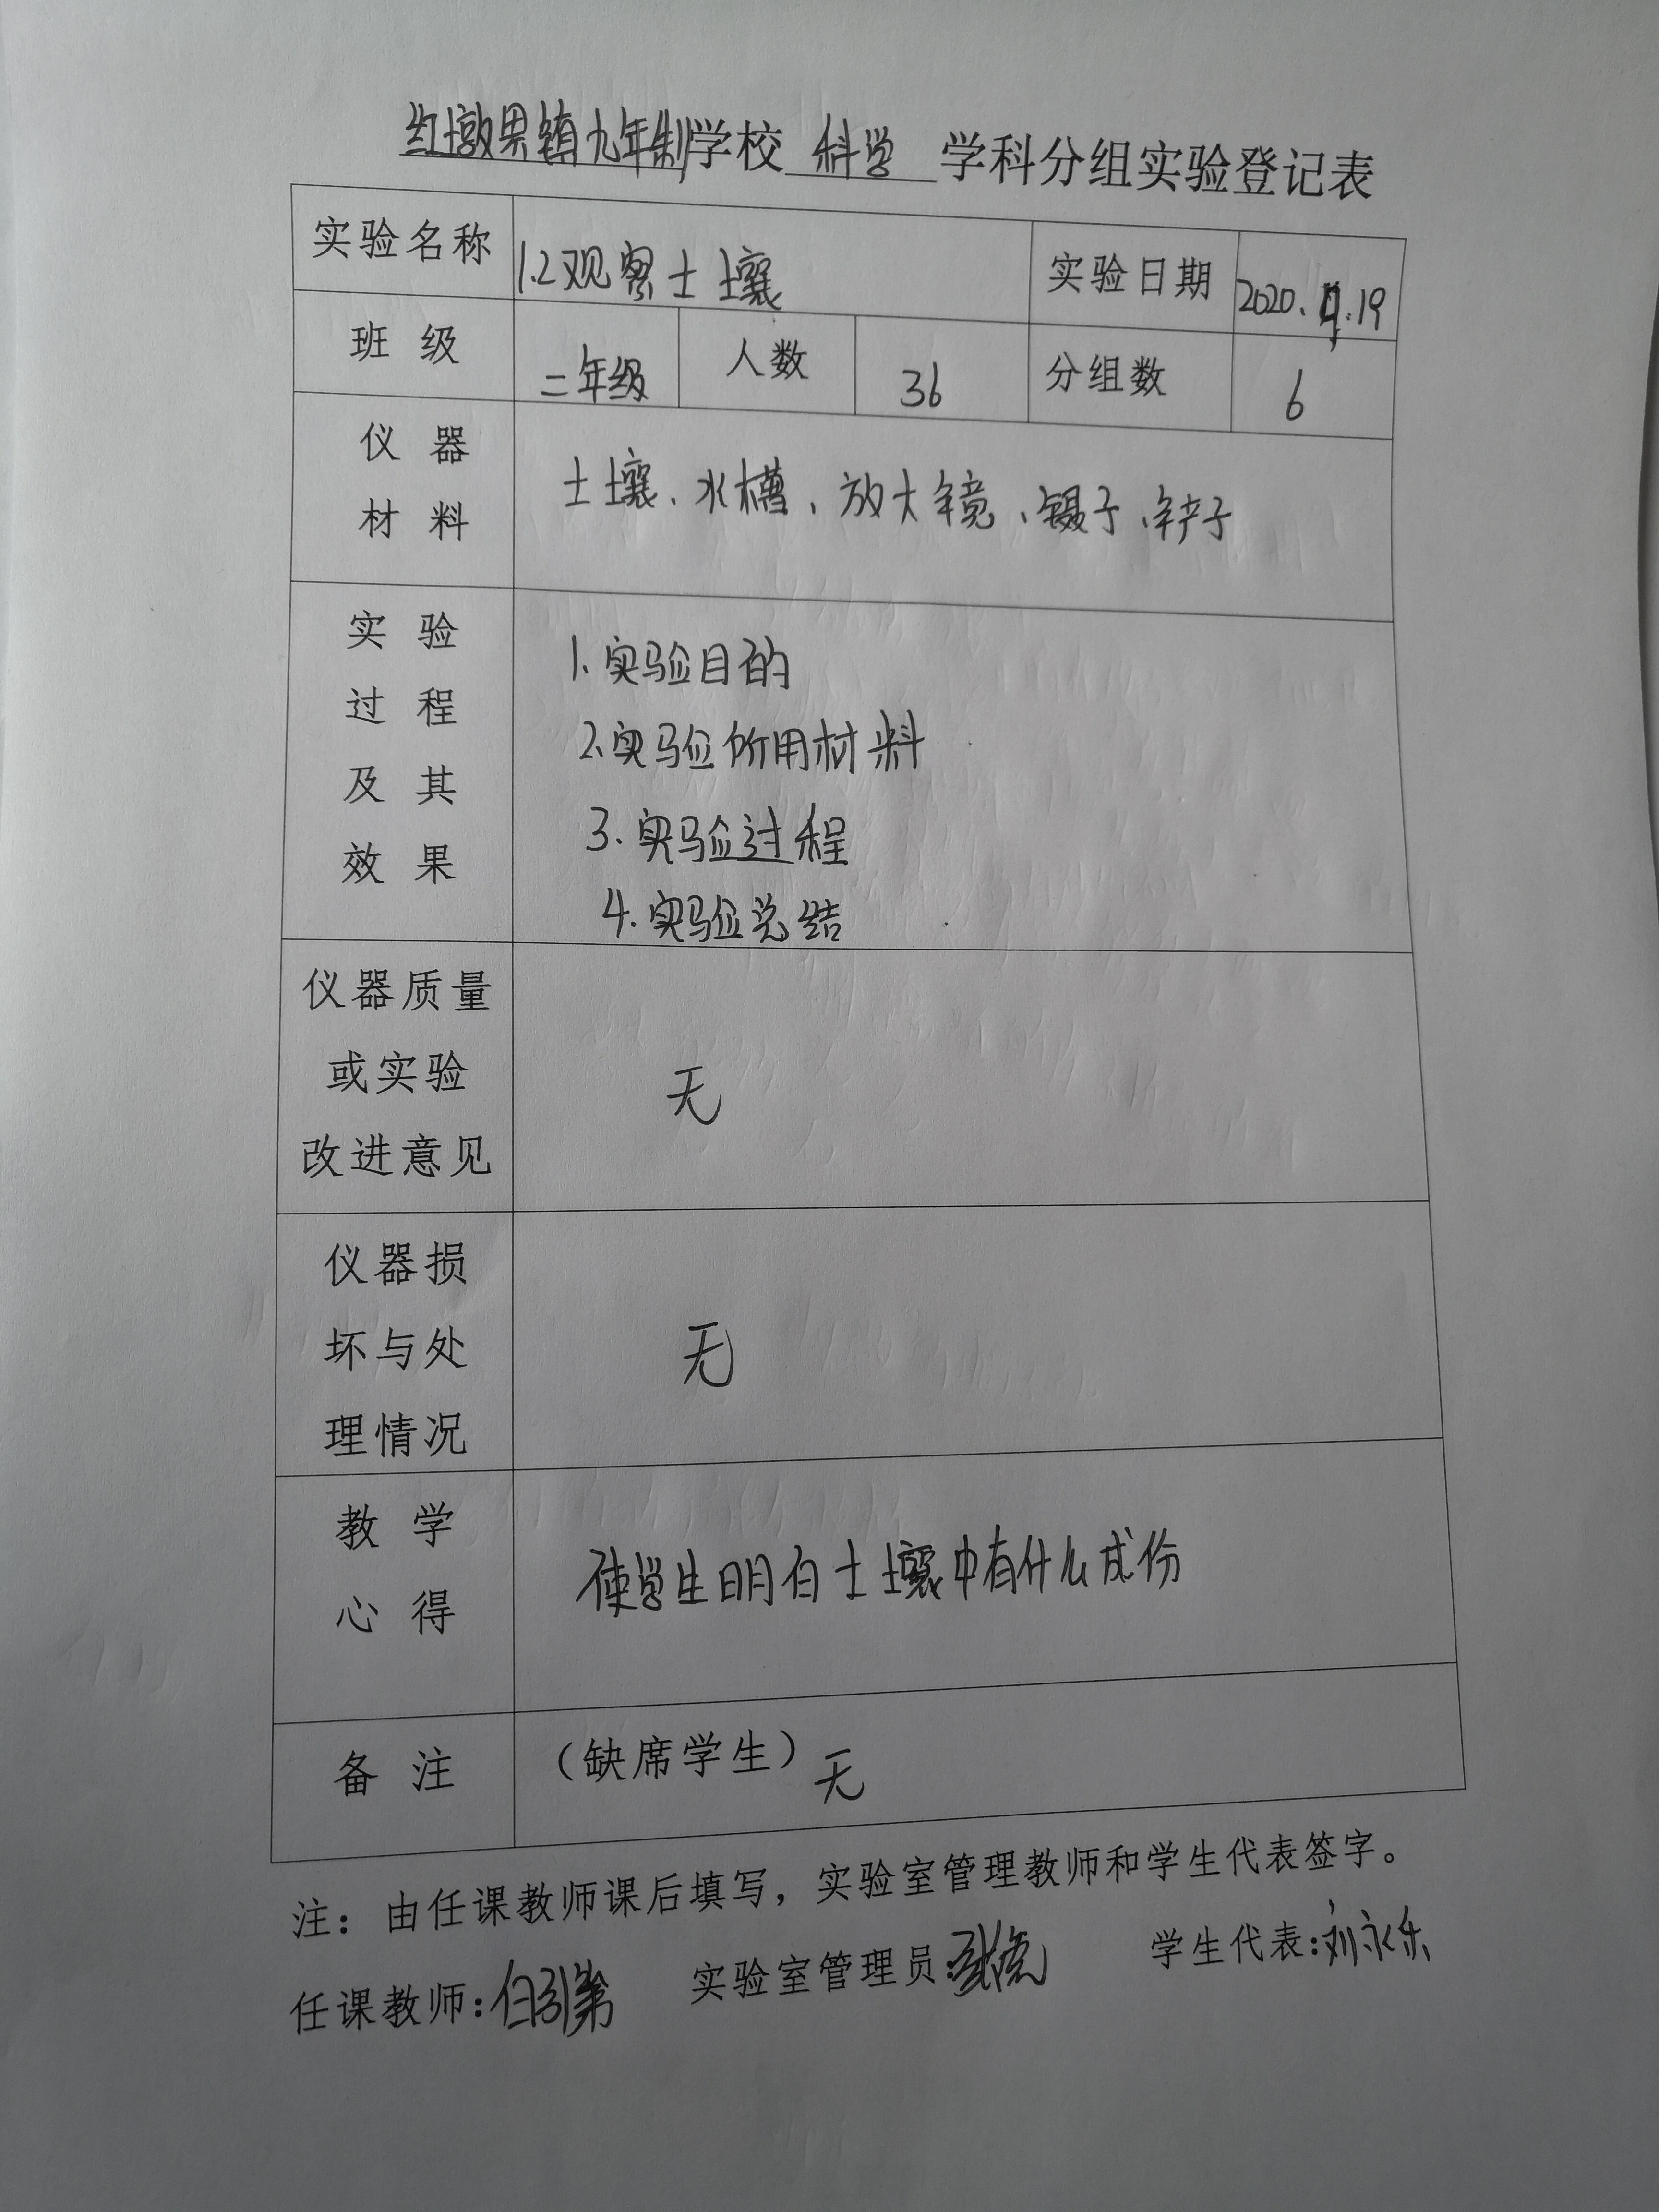 红墩界镇九年制学校 科学 学科分组实验登记表
实验名称 1.2观察土壤 实验日期 2020. .19
班 级 二年级 人数 36 分组数 6
仪 器
材 料
土壤、水槽、放大镜、镊子、铲子
实 验
过 程
及 其
效 果
1.实验目的
2.实验所用材料
3.实验过程
4.实验总结
仪器质量
或实验
改进意见
无
仪器损
坏与处
理情况
无
教 学
心 得
使学生明白土壤中有什么成份
备 注 (缺席学生) 无
注：由任课教师课后填写，实验室管理教师和学生代表签字。
任课教师: 白引弟 实验室管理员: 学生代表:刘永乐